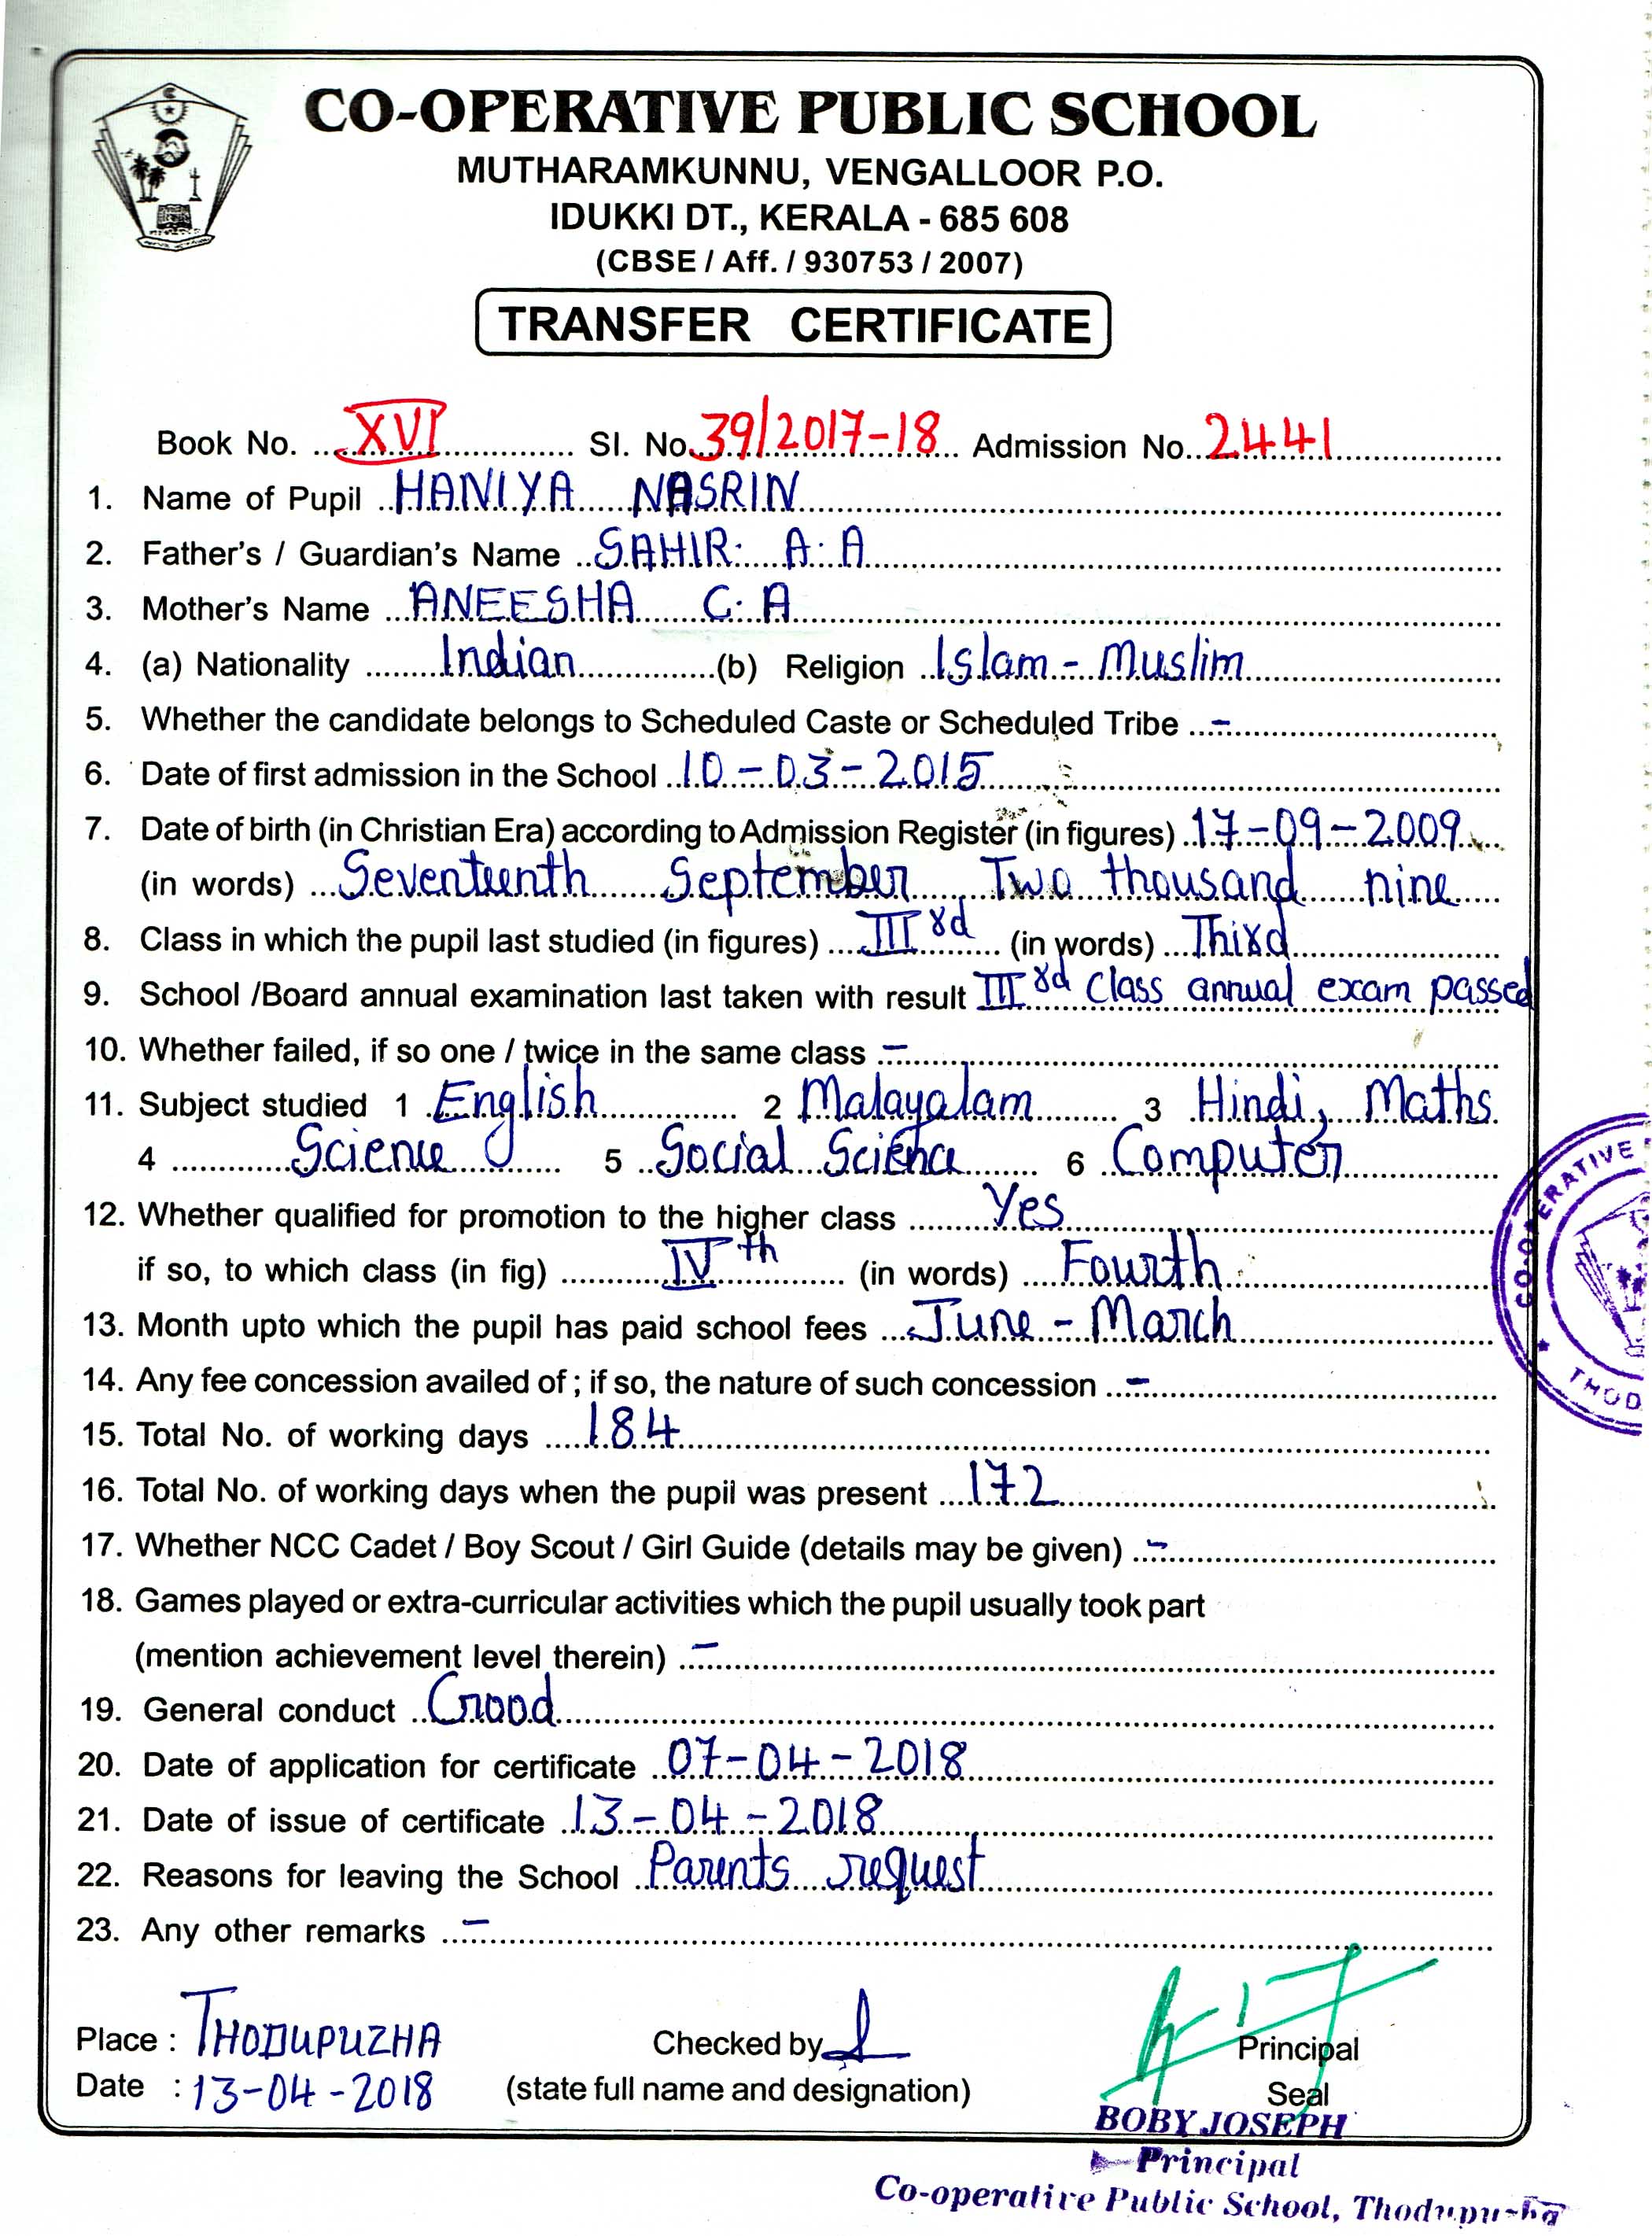 CO-OPERATIVE PUBLIC SCHOOL
MUTHARAMKUNNU, VENGALLOOR P.O.
IDUKKI DT., KERALA - 685 608
(CBSE / Aff. / 930753 / 2007)
TRANSFER CERTIFICATE
Book No. XVI Sl. No. 39/2017-18 Admission No. 2441
1. Name of Pupil HANIYA NASRIN
2. Father's / Guardian's Name SAHIR. A. A
3. Mother's Name ANEESHA C. A
4. (a) Nationality Indian (b) Religion Islam - Muslim
5. Whether the candidate belongs to Scheduled Caste or Scheduled Tribe -
6. Date of first admission in the School 10-03-2015
7. Date of birth (in Christian Era) according to Admission Register (in figures) 17-09-2009
(in words) Seventeenth September Two thousand nine
8. Class in which the pupil last studied (in figures) III rd (in words) Third
9. School /Board annual examination last taken with result III rd Class annual exam passed
10. Whether failed, if so one / twice in the same class -
11. Subject studied 1 English 2 Malayalam 3 Hindi, Maths
4 Science 5 Social Science 6 Computer
12. Whether qualified for promotion to the higher class Yes
if so, to which class (in fig) IV th (in words) Fourth
13. Month upto which the pupil has paid school fees June - March
14. Any fee concession availed of ; if so, the nature of such concession -
15. Total No. of working days 184
16. Total No. of working days when the pupil was present 172
17. Whether NCC Cadet / Boy Scout / Girl Guide (details may be given) -
18. Games played or extra-curricular activities which the pupil usually took part
(mention achievement level therein) -
19. General conduct Good
20. Date of application for certificate 07-04-2018
21. Date of issue of certificate 13-04-2018
22. Reasons for leaving the School Parents request
23. Any other remarks -
Place : THODUPUZHA Checked by Principal
Date : 13-04-2018 (state full name and designation) Seal
BOBY JOSEPH
Principal
Co-operative Public School, Thodupuzha
CO-OPERATIVE
THOD